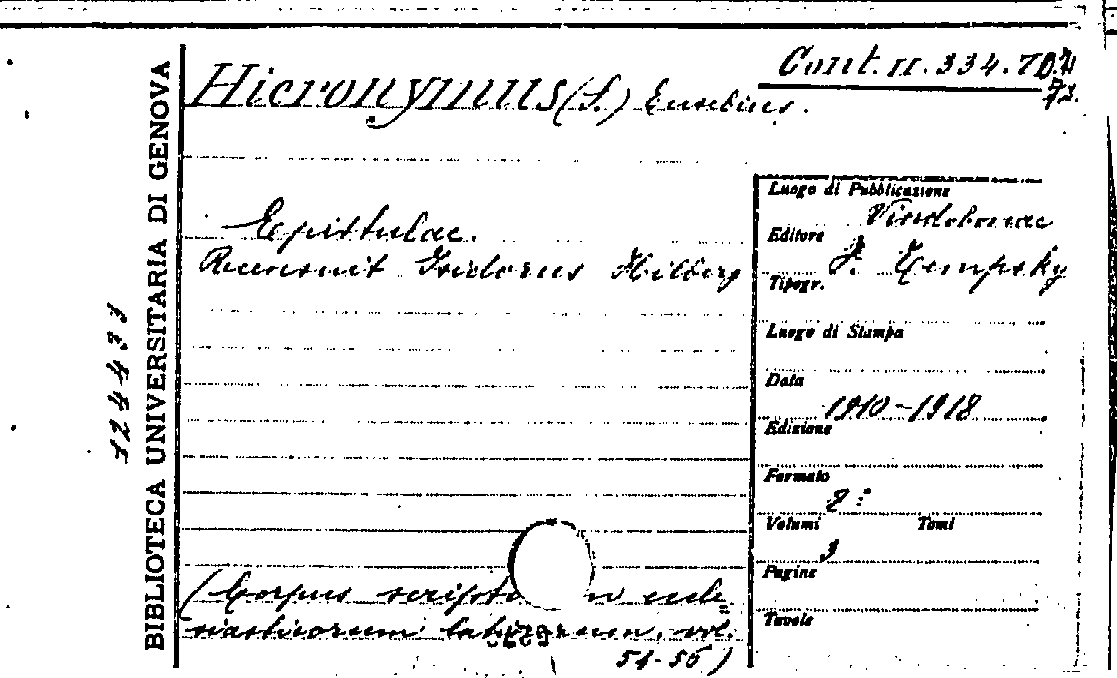 Cont. n. 334.702
73.
Hieronymus (S.) Eusebius.
Epistulae.
Recensuit Isidorus Hilberg
(Corpus scripto n eccle
siasticorum latinorum, vol.
54-56)
Luogo di Pubblicazione
Vindobonae
Editore
F. Tempsky
Tipogr.
Luogo di Stampa
Data
1910-1918
Edizione
Formato
8°
Volumi Tomi
3
Pagine
Tavole
BIBLIOTECA UNIVERSITARIA DI GENOVA